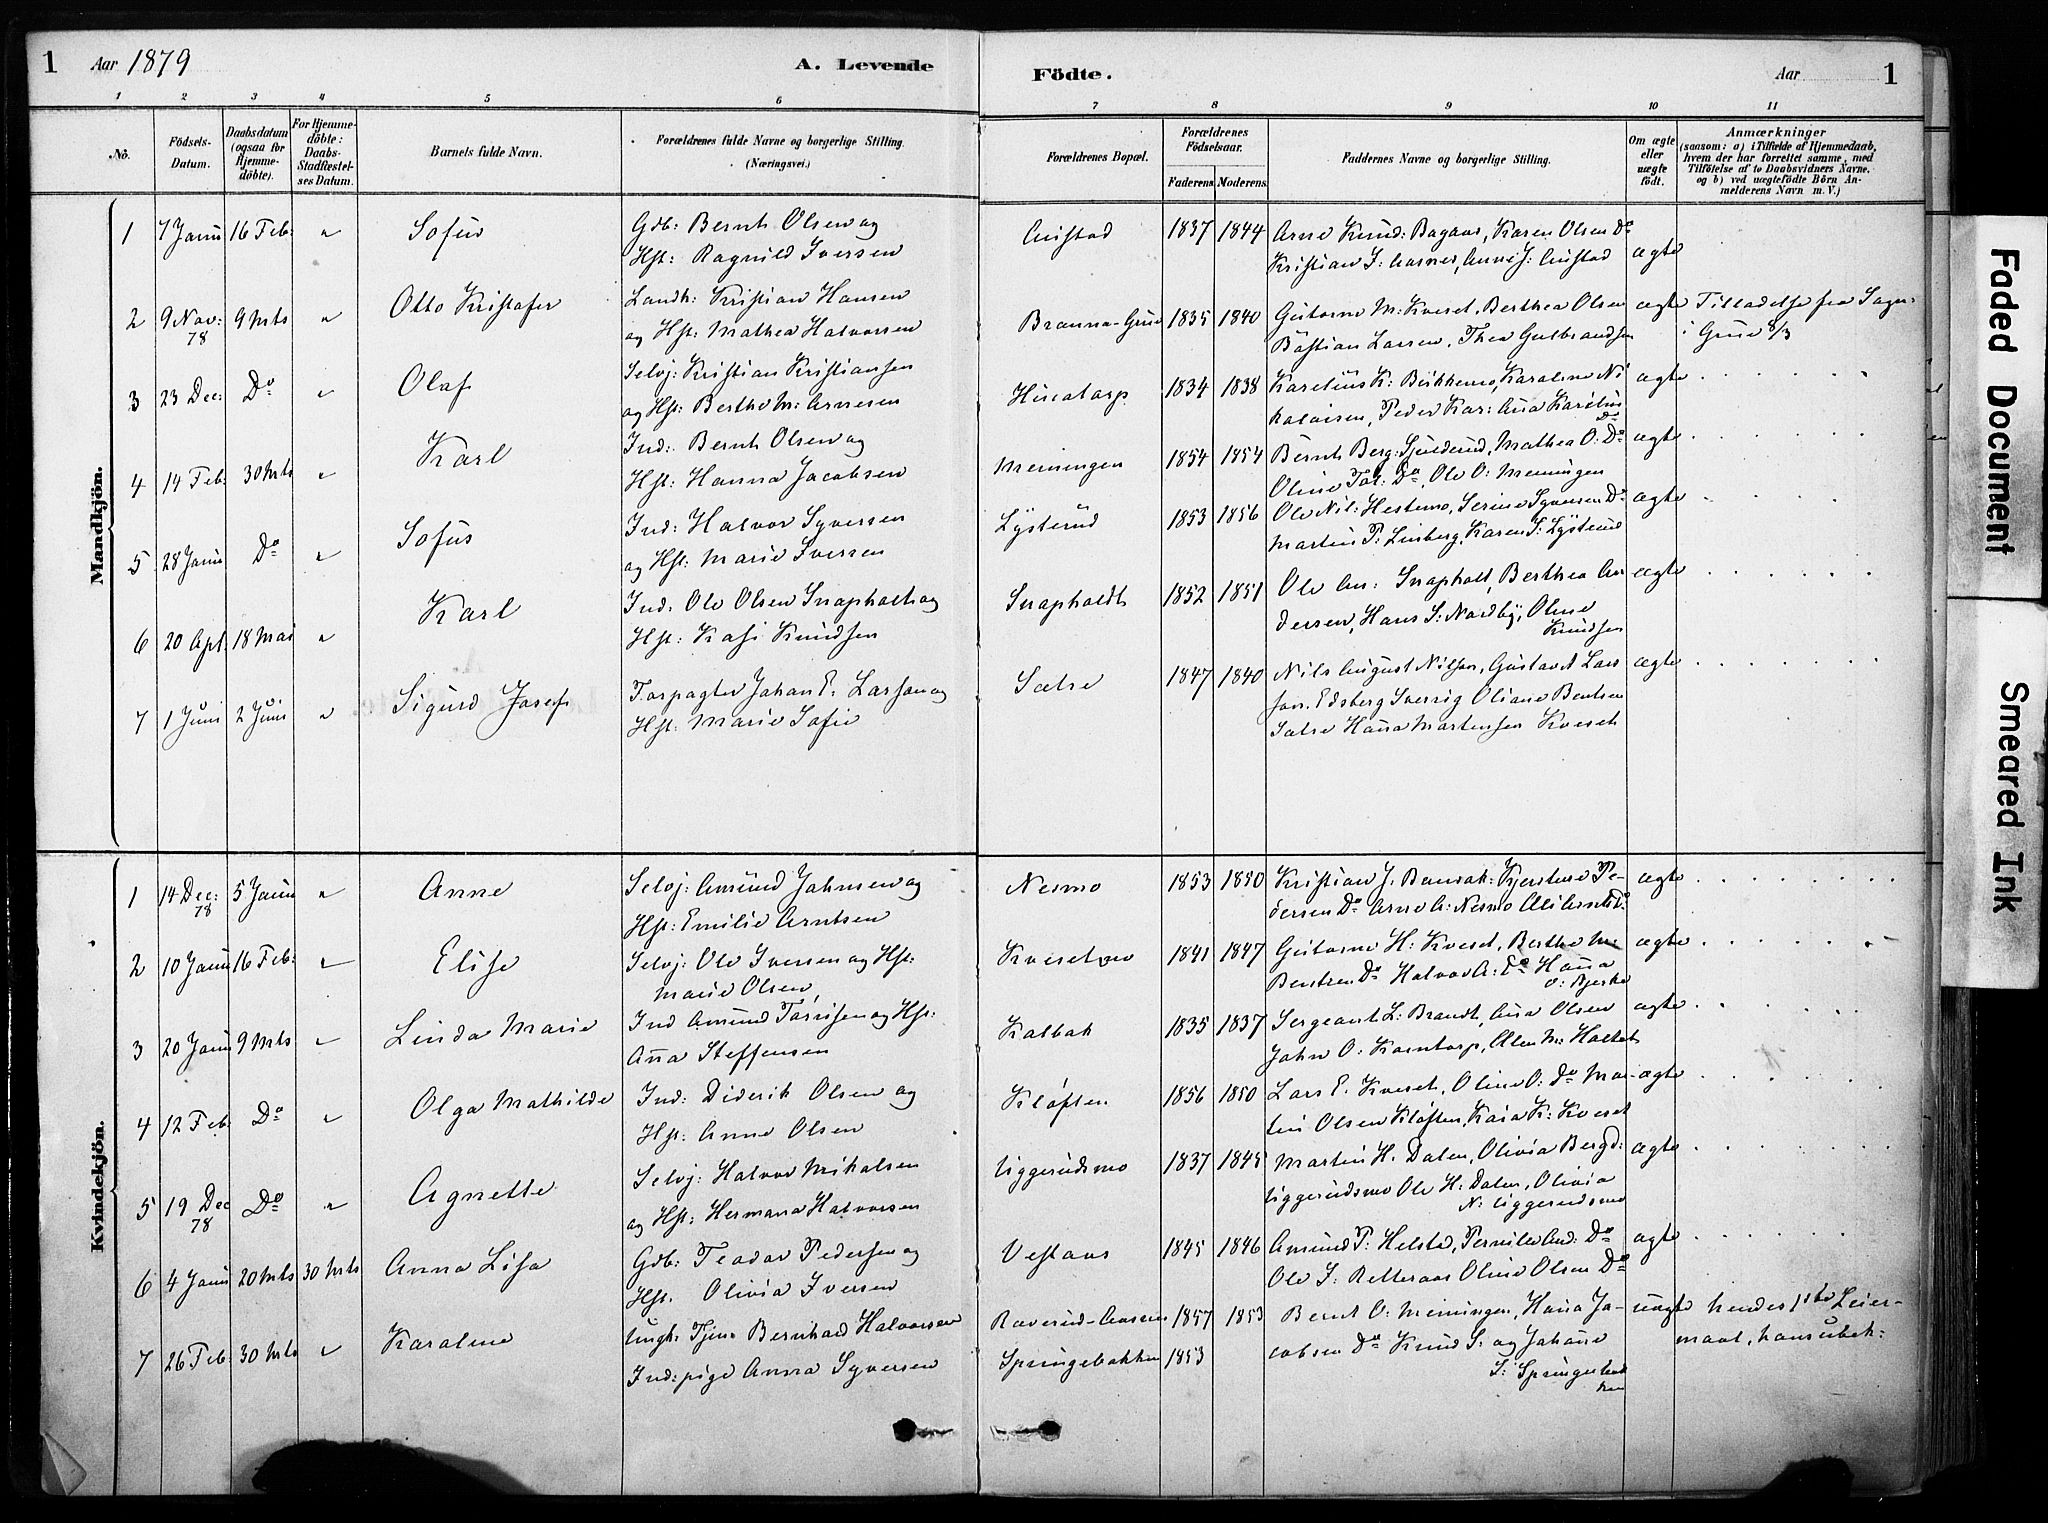 1 Aar 1879 A. Levende Födte. Aar 1
1 2 3 4 5 6 7 8 9 10 11
No. Födsels-Datum. Daabsdatum (ogsaa for Hjemme-döbte). For Hjemme-döbte: Daabs-Stadfæstel-ses Datum. Barnets fulde Navn. Forældrenes fulde Navne og borgerlige Stilling. (Næringsvei.) Forældrenes Bopæl. Forældrenes Födselsaar. Faderens Moderens. Faddernes Navne og borgerlige Stilling. Om ægte eller uægte födt. Anmærkninger (saasom: a) i Tilfælde af Hjemmedaab, hvem der har forrettet samme, med Tilföielse af to Daabsvidners Navne. og b) ved uægtefödte Börn An-melderens Navn m. V.)
Mandkjön.
1 7 Janu 16 Feb: " Sofus Gdb: Bernt Olsen og Austad 1837 1844 Arne Knud: Bagaas, Karen Olsen Do
Hst: Ragnild Iversen Kristian J: Aasnes, Anne J: Austad ægte
2 9 Nov: 78 9 Mts " Otto Kristofer Landh: Kristian Hansen Branna-Grue 1835 1840 Gutorm M: Kveset, Berthea Olsen ægte Tilladelse fra Sogn:
og Hst: Mathea Halvorsen Bastian Larsen, Thea Gulbrandsen i Grue 8/3
3 23 Dec: Do " Olaf Selvj: Kristian Kristiansen 1834 1838 Karelius K: Bukkemo, Karoline Ni ægte
og Hst: Berthe M: Arnesen kolaisen, Peder Kar: Ana Karelius Do
4 14 Feb: 30 Mts " Karl Ind: Bernt Olsen og Meiningen 1854 1854 Bernt Berg: Sjulerud, Mathea O: Do ægte
Hst: Hanna Jacobsen Oline Do, Ole O: Meiningen
5 28 Janu Do " Sofus Ind: Halvor Syversen Lysterud 1853 1856 Ole Nil: Hestemo, Serine Syversen Do ægte
og Hst: Marie Iversen Martin P: Linberg, Karen S: Lysterud
6 20 Apl. 18 Mai " Karl Ind: Ole Olsen Snapholt og Snapholdt 1852 1851 Ole An: Snapholt, Berthea An ægte
Hst: Kasi Knudsen dersen, Hans S: Nordby, Oline Knudsen
7 1 Juni 2 Juni " Sigurd Josef Forpagter Johan E. Larson og Sætre 1847 1840 Nils August Nilson, Gustav A Lars ægte
Hst: Marie Sofie son. Edsberg Sverrig Oliane Bentsen
Sætre Hana Martensen Kveset
Kvindekjön.
1 14 Dec: 78 5 Janu " Anne Selvj: Amund Johnsen og Nesmo 1853 1850 Kristian J. Bansak: Kjerstine Pe- ægte
Hst: Emilie Arntsen dersen Do Arne A: Nesmo
2 10 Janu 16 Feb: " Elise Selvj: Ole Iversen og Hst: Kvesetmo 1841 1847 Gutorm H: Kveset, Berthe M: ægte
Marie Olsen Bentsen Do Halvor A: Do Hana O: Bjerke
3 20 Janu 9 Mts " Linda Marie Ind Amund Torrisen og Hst: Kalbak 1835 1837 Sergeant L: Brandt, Ana Olsen ægte
Ana Steffensen John O: Korntorp, Olen M: Haltet
4 12 Feb: Do " Olga Mathilde Ind: Diderik Olsen og Kløften 1856 1850 Lars E. Kveset, Oline O: Do Mar- ægte
Hst: Anne Olsen tin Olsen Kløften, Kaia K: Kveset
5 19 Dec 78 Do " Agnette Selvj: Halvor Mikalsen Liggerudsmo 1837 1845 Martin H. Dalen, Olivia Bergd: ægte
og Hst: Hermana Halvorsen Liggerudsmo Ole H: Dalen, Olivia N: Liggerudsmo
6 4 Janu 20 Mts 30 Mts Anna Lisa Gdb: Teodor Pedersen og Vestaas 1845 1846 Amund P: Helstad, Pernille And: Do ægte
Hst. Olivia Iversen Ole J: Retteraas Oline Olsen Do
7 26 Feb: 30 Mts " Karoline Ungk: Tjen: Bernhard Halvorsen Raverud-Aasnes 1857 1853 Bernt O: Meiningen, Hana Ja- uægte hendes 1ste Leier-
Ind: pige Anna Syversen Springebakken 1853 cobsen Do Knud S: og Johane maal, hans ubek:
S: Springebakken
Faded Document
Smeared Ink